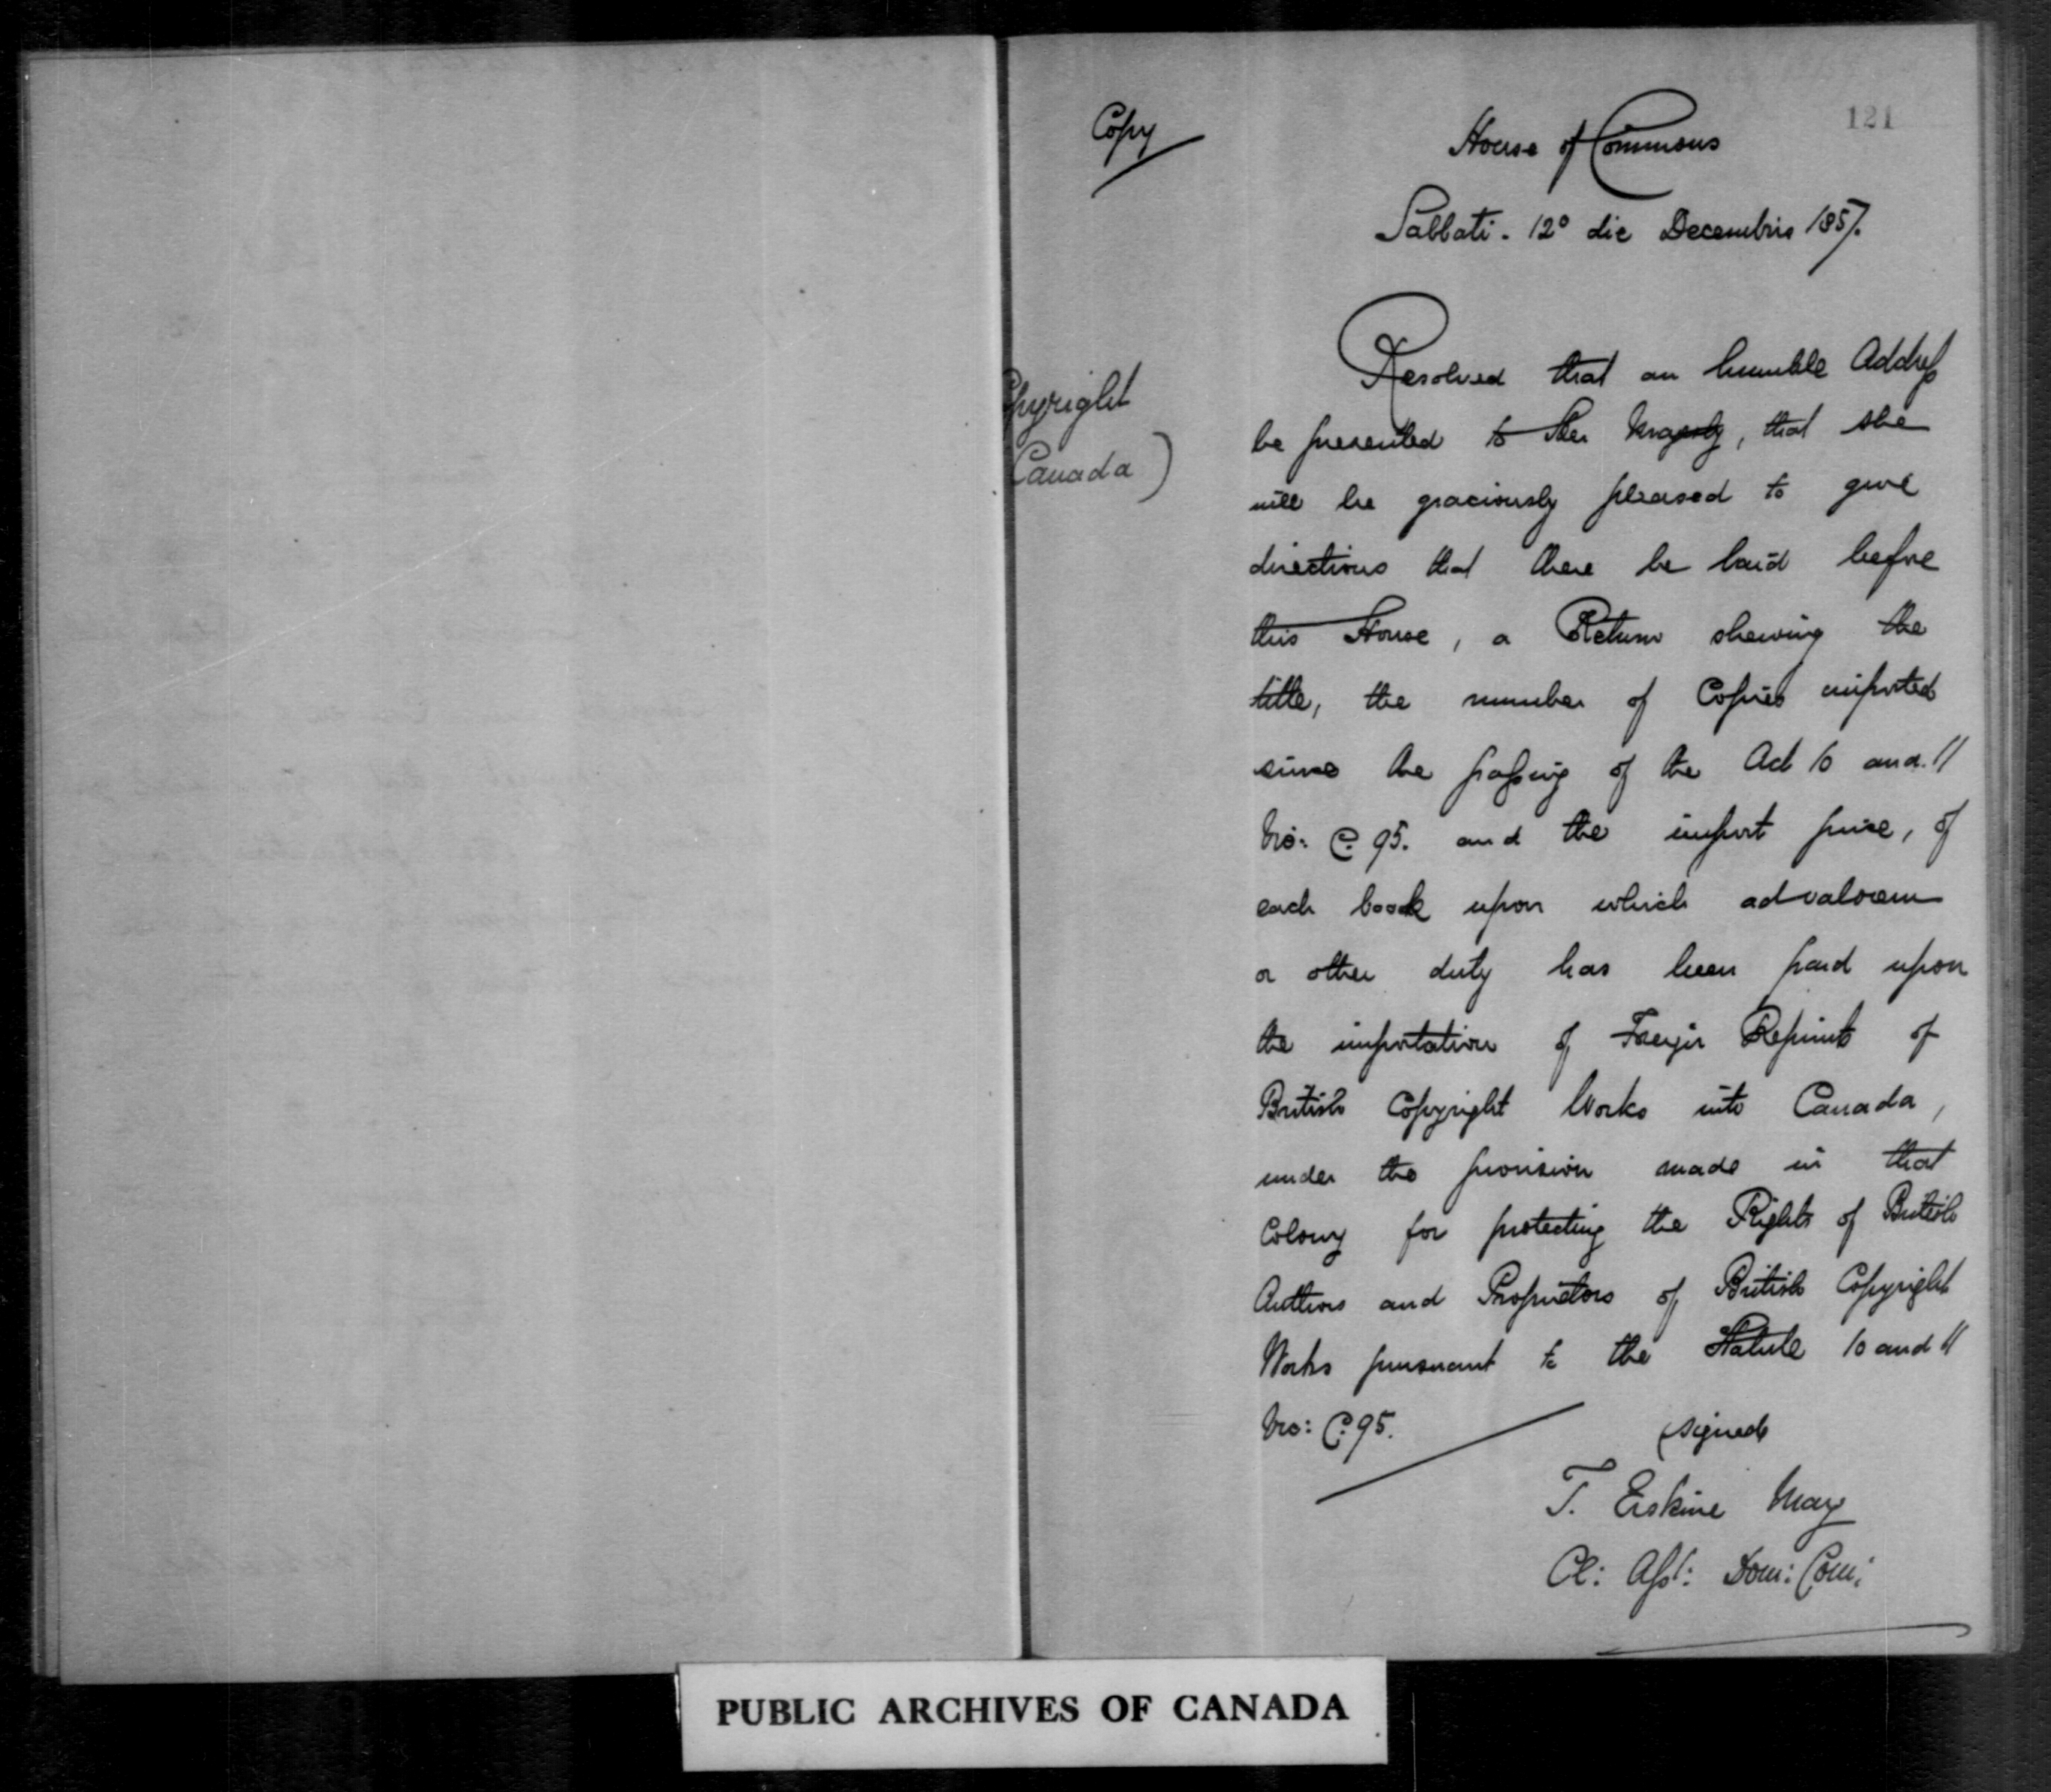 121
Copy
House of Commons
Sabbati. 12° die Decembris 1857.
opyright
(Canada)
Resolved that an humble Address
be presented to Her Majesty, that she
will be graciously pleased to give
directions that there be laid before
this House, a Return shewing the
title, the number of Copies imported
since the passing of the Act 10 and 11
Vic: C. 95. and the import price, of
each book upon which advalorem
or other duty has been paid upon
the importation of Foreign Reprints of
British Copyright Works into Canada,
under the provision made in that
Colony for protecting the Rights of British
Authors and Proprietors of British Copyright
Works pursuant to the Statute 10 and 11
Vic: C. 95.
(signed
T. Erskine May
Cl: Asst: Dom: Com:
PUBLIC ARCHIVES OF CANADA